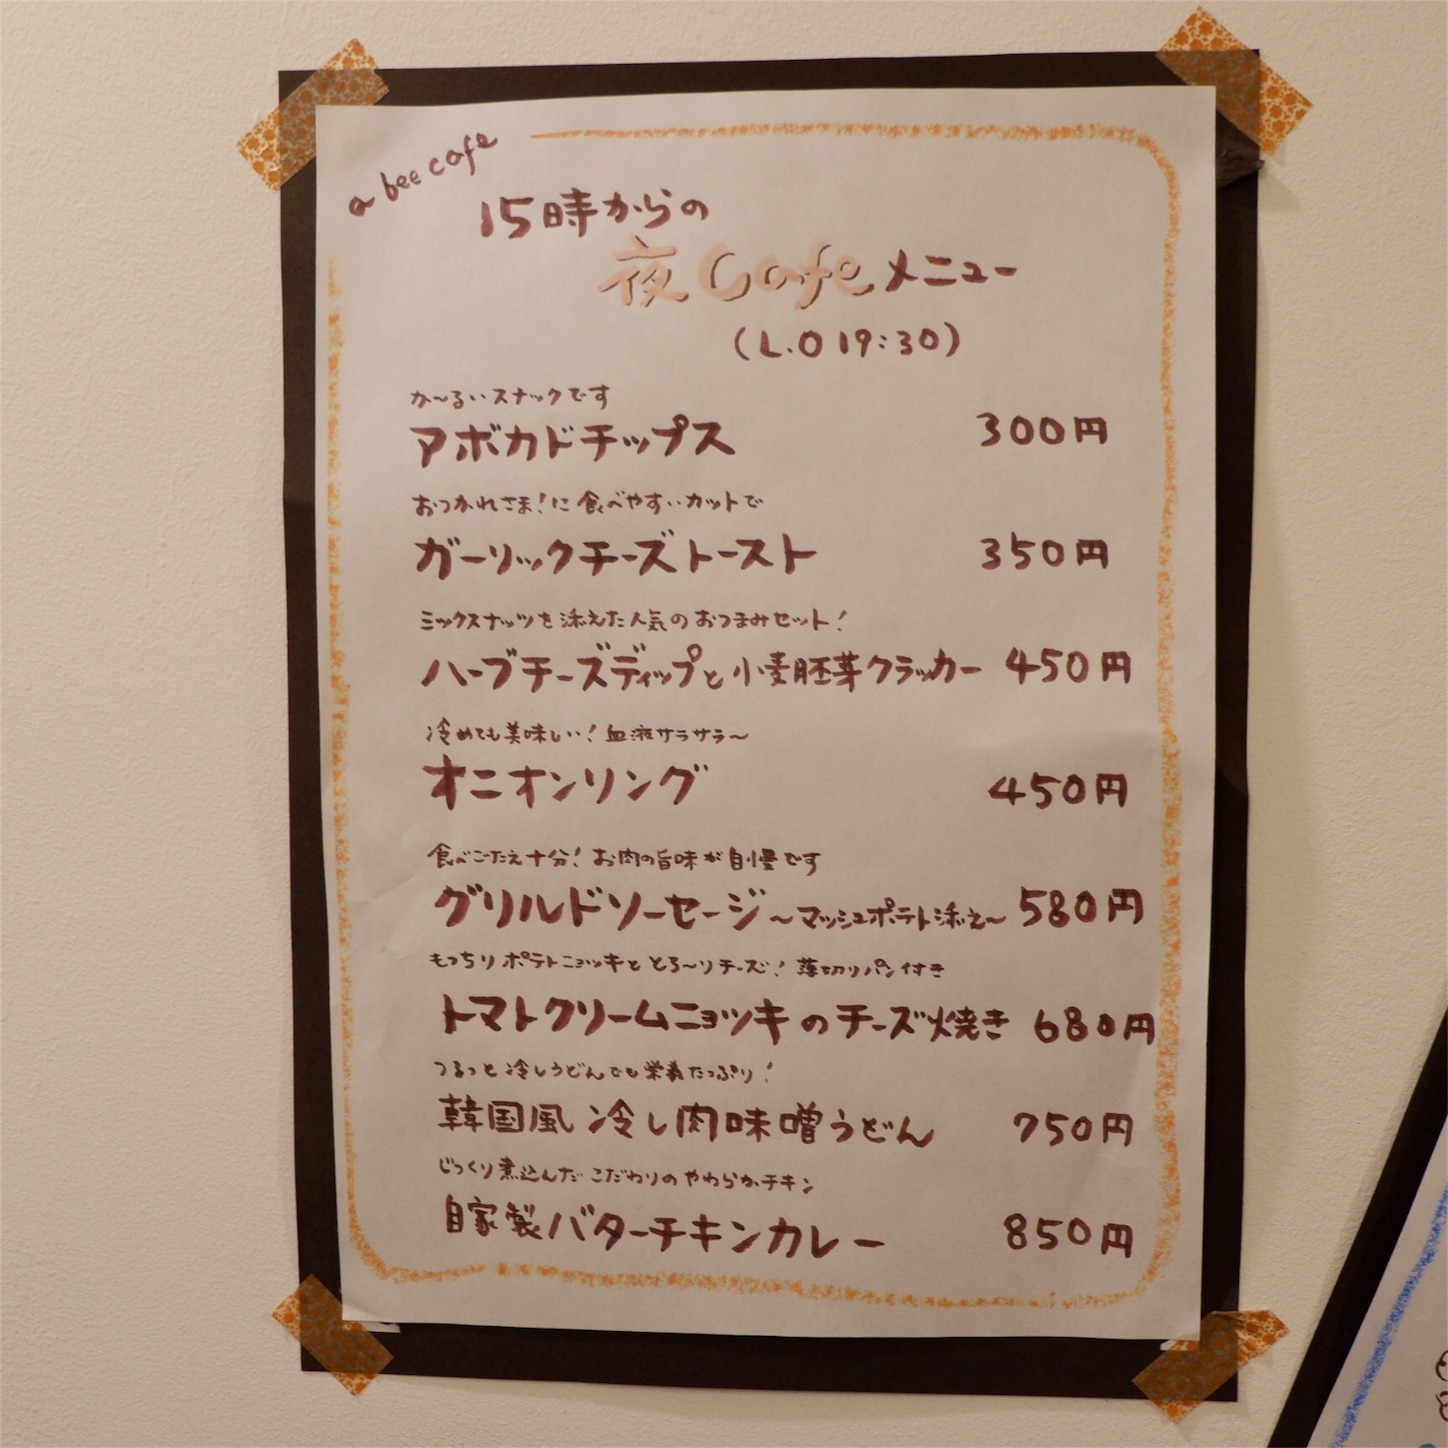 a bee cafe
15時からの
夜Cafeメニュー
(L.O 19:30)
か〜るいスナックです
アボカドチップス 300円
おつかれさま!に食べやすいカットで
ガーリックチーズトースト 350円
ミックスナッツを添えた人気のおつまみセット!
ハーブチーズディップと小麦胚芽クラッカー 450円
冷めても美味しい!血液サラサラ〜
オニオンリング 450円
食べごたえ十分!お肉の旨味が自慢です
グリルドソーセージ〜マッシュポテト添え〜 580円
もっちりポテトニョッキととろ〜りチーズ!薄切りパン付き
トマトクリームニョッキのチーズ焼き 680円
つるっと冷しうどんでも栄養たっぷり!
韓国風 冷し肉味噌うどん 750円
じっくり煮込んだこだわりのやわらかチキン
自家製バターチキンカレー 850円